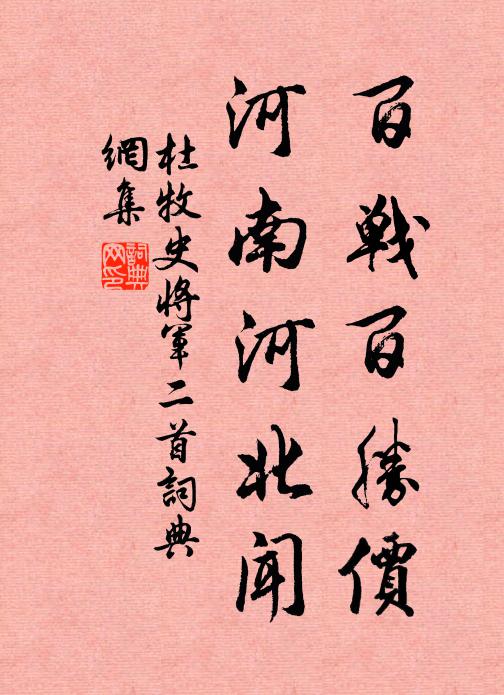 百戰百勝價
河南河北聞
杜牧史將軍二首詞典
網集
詞典
网印